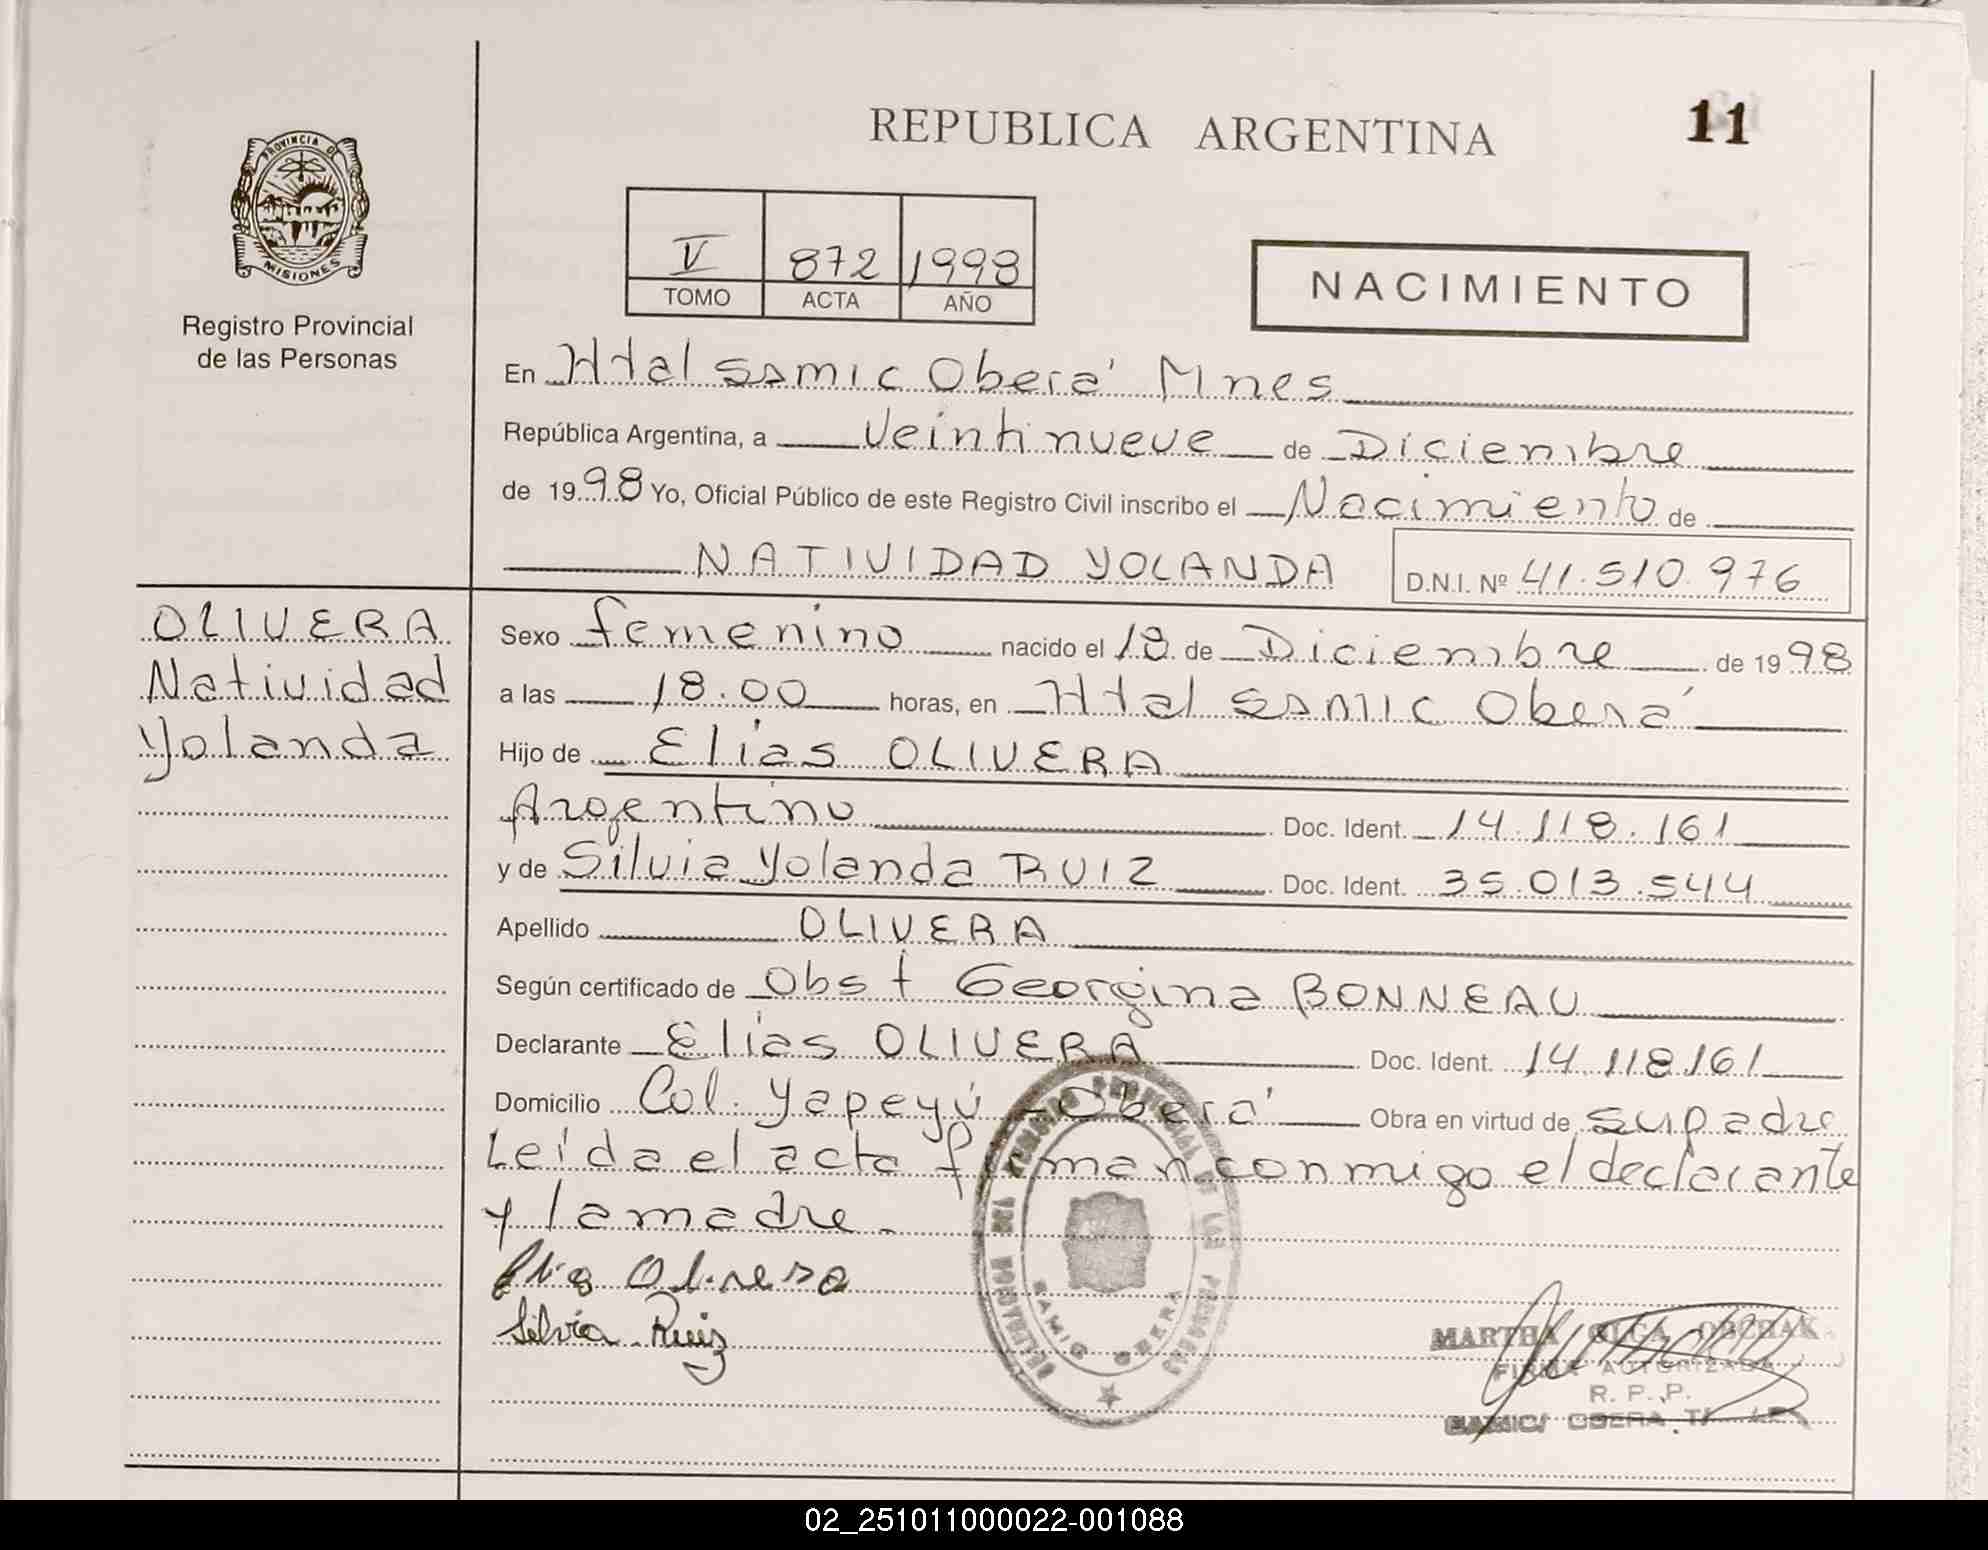 REPUBLICA ARGENTINA
11
PROVINCIA DE
MISIONES
Registro Provincial
de las Personas
V 872 1998
TOMO ACTA AÑO
NACIMIENTO
En Htal SAMIC Oberá Mnes
República Argentina, a Veintinueve de Diciembre
de 1998 Yo, Oficial Público de este Registro Civil inscribo el Nacimiento de
NATIVIDAD YOLANDA D.N.I. Nº 41.510.976
OLIVERA
Natividad
Yolanda
Sexo femenino nacido el 18 de Diciembre de 1998
a las 18.00 horas, en Htal SAMIC Oberá
Hijo de Elias OLIVERA
Argentino Doc. Ident. 14.118.161
y de Silvia Yolanda RUIZ Doc. Ident. 35.013.544
Apellido OLIVERA
Según certificado de Obst Georgina BONNEAU
Declarante Elias OLIVERA Doc. Ident. 14.118.161
Domicilio Col. Yapeyú - Oberá Obra en virtud de su padre
Leida el acta firman conmigo el declarante
y la madre.
Olivera
Silvia Ruiz
DELEGACION DEL REGISTRO PROVINCIAL DE LAS PERSONAS
SAMIC OBERA
MARTHA OLGA
FIRMA AUTORIZADA
R. P. P.
SAMIC OBERA
02_251011000022-001088